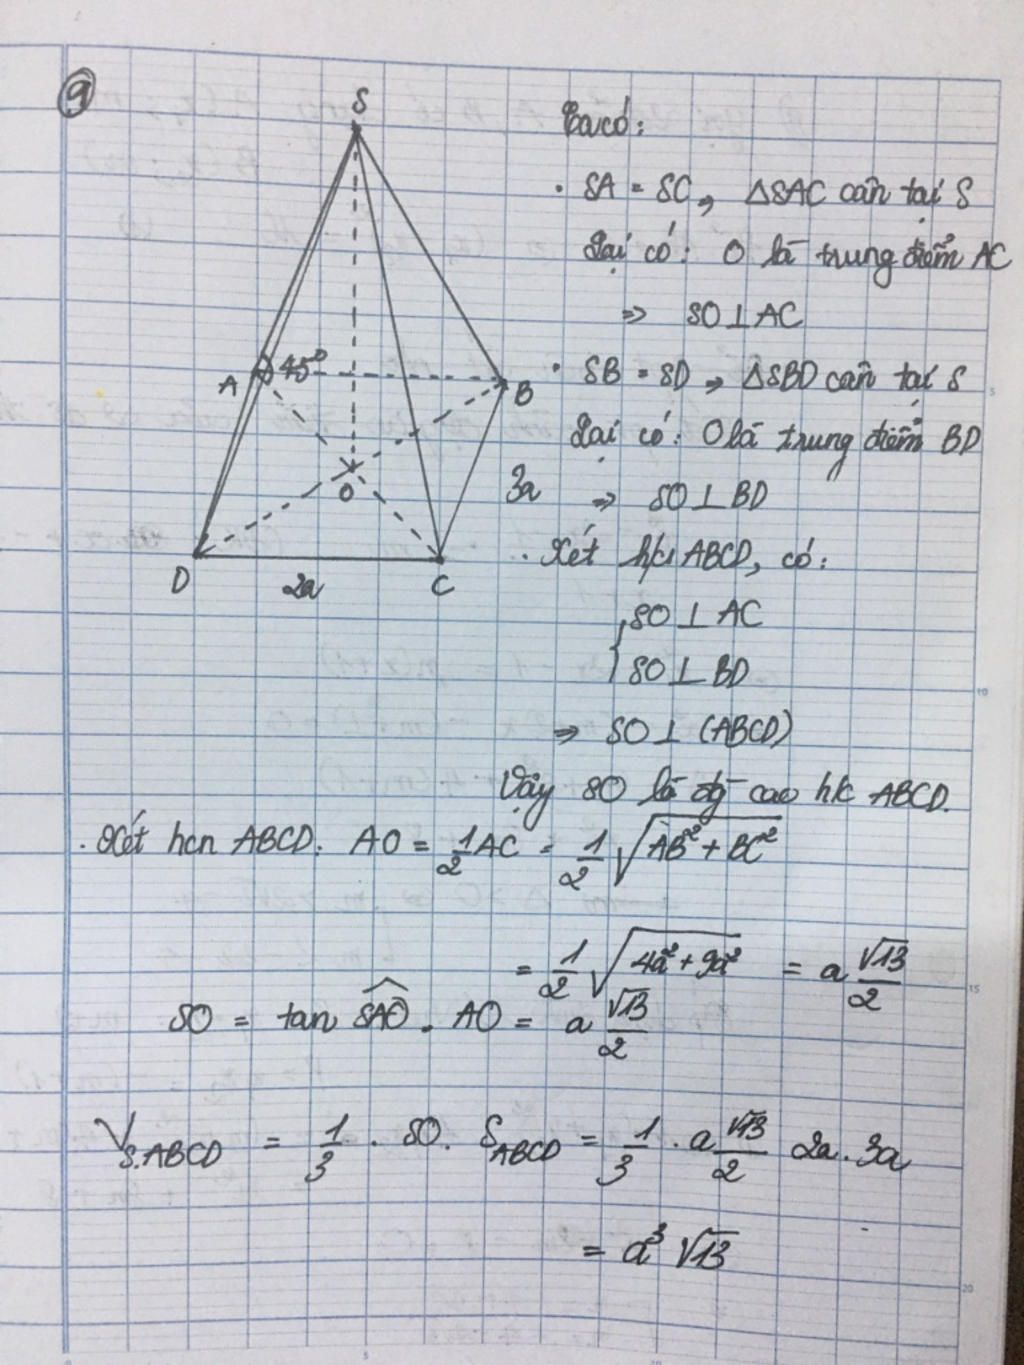 9
S
Ta có:
• SA = SC ⇒ ΔSAC cân tại S
Lại có: O là trung điểm AC
⇒ SO ⊥ AC
• SB = SD ⇒ ΔSBD cân tại S
Lại có: O là trung điểm BD
⇒ SO ⊥ BD
A 45° B
O
3a
D 2a C
.. Xét h/c ABCD, có:
{ SO ⊥ AC
SO ⊥ BD
⇒ SO ⊥ (ABCD)
Vậy SO là đg cao h/c ABCD.
. Xét hcn ABCD: AO = 1/2 AC = 1/2 √(AB² + BC²)
= 1/2 √(4a² + 9a²) = a √13/2
SO = tan SAO^ . AO = a √13/2
V_S.ABCD = 1/3 . SO . S_ABCD = 1/3 . a √13/2 2a . 3a
= a³ √13